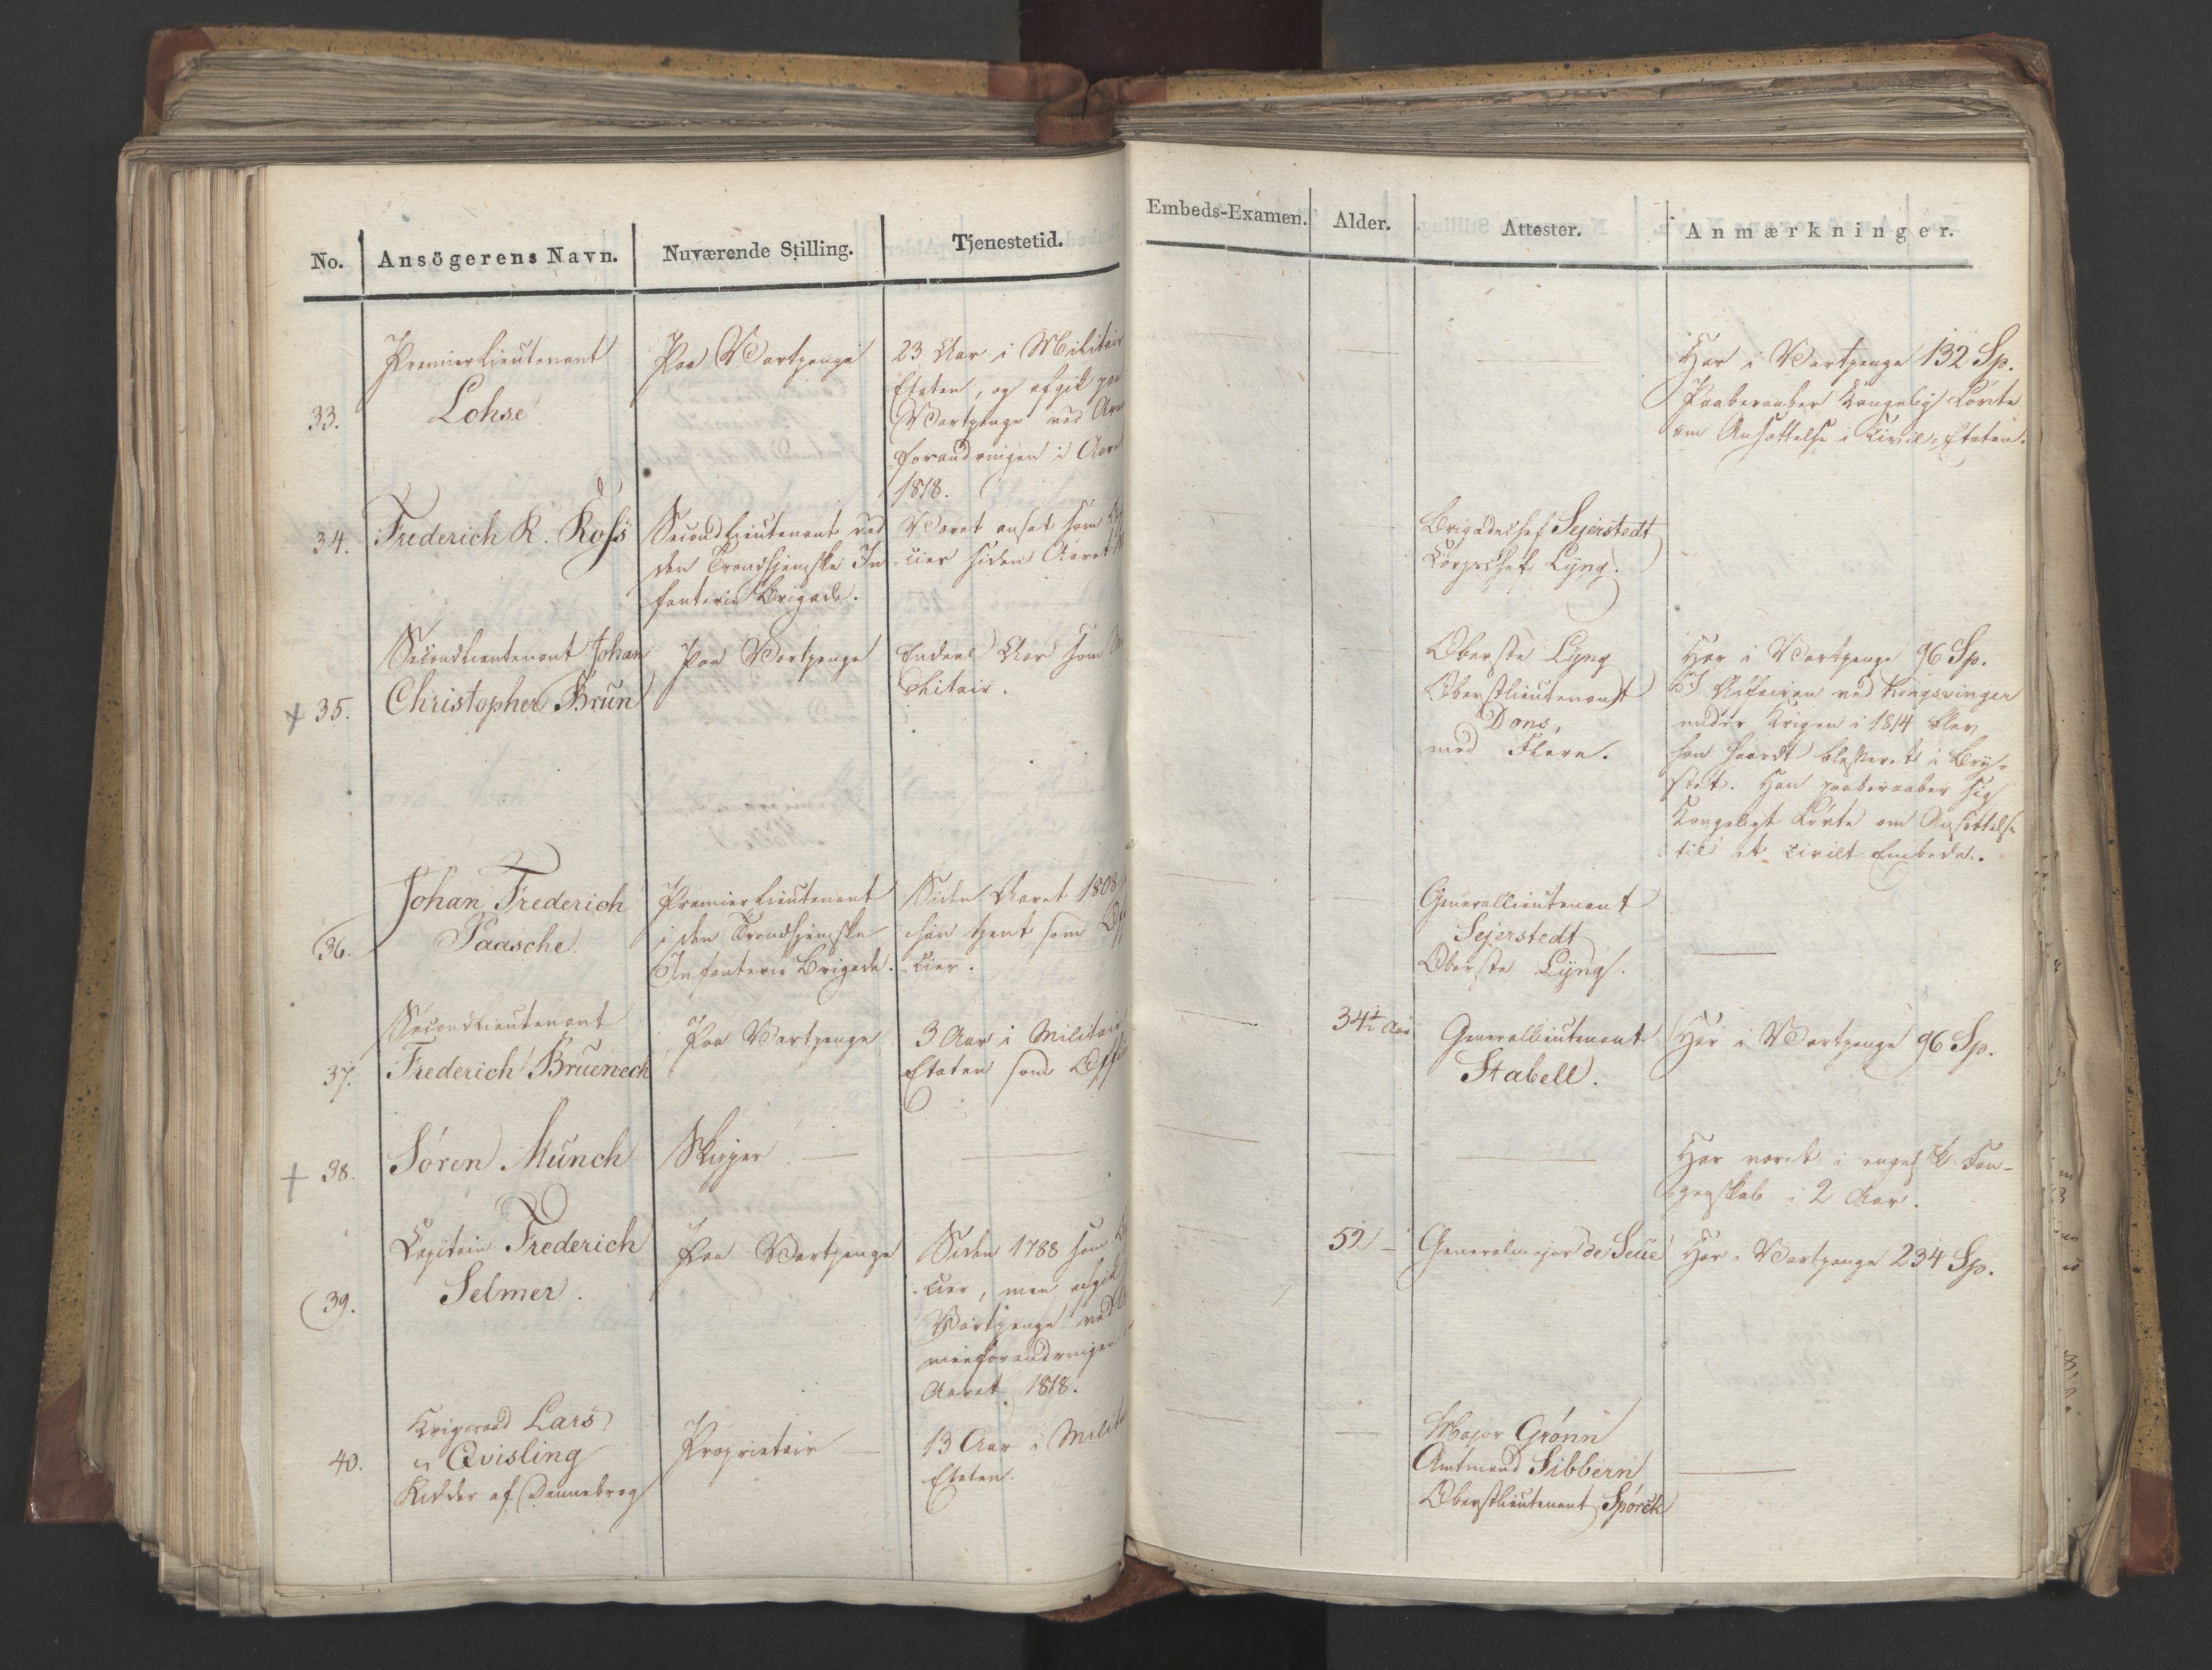 No. Ansögerens Navn. Nuværende Stilling. Tjenestetid. Embeds-Examen. Alder. Attester. Anmærkninger.
33.
Premierlieutenant
Lohse
Paa Vartpenge
23 Aar i Militair
Etaten, og afgik paa
Vartpenge ved
forandringen i Aaret
1818.
Har i Vartpenge 132 Sp.
Paaberaaber Kongelig Lövte
om Ansættelse i Civil-Etaten.
34.
Frederich R. Koss
Secondlieutenant ved
den Trondhjemske In
fanterie Brigade.
Været ansat som
cier siden Aaret
Brigadechef Sejerstedt
Corpschef Lÿng.
+ 35.
Secondlieutenant Johan
Christopher Brun
Paa Vartpenge
Endeel Aar som
litair.
Oberste Lÿng
Oberstlieutenant
Dons,
med Flere.
Har i Vartpenge 96 Sp.
I Affairen ved Kongsvinger
under Krigen i 1814 blev
han haardt blesseret i Bry-
stet. Han paaberaaber sig
Kongeligt Lövte om Ansættelse
til et civilt Embede.
36.
Johan Frederich
Paasche.
Premierlieutenant
i den Trondhjemske
Infanterie Brigade.
Siden Aaret 1808
han tjent som
cier.
Generallieutenant
Sejerstedt
Oberste Lÿng.
37.
Secondlieutenant
Frederich Bruenech
Paa Vartpenge
3 Aar i Militair
Etaten som
34½ Aar
Generallieutenant
Stabell.
Har i Vartpenge 96 Sp.
+ 38.
Sören Münch
Skipper
Har været i engelsk Fan-
genskab i 2 Aar.
39.
Capitain Frederich
Selmer.
Paa Vartpenge
Siden 1788 som
cier, men afgik
Vartpenge ved
meeforandringen
Aaret 1818.
52 -
Generalmajor de Seue
Har i Vartpenge 234 Sp.
40.
Krigsraad Lars
Qvisling
Ridder af Dannebrog
Proprietair
13 Aar i
Etaten.
Major Grönn
Amtmand Sibbern
Oberstlieutenant Spörck